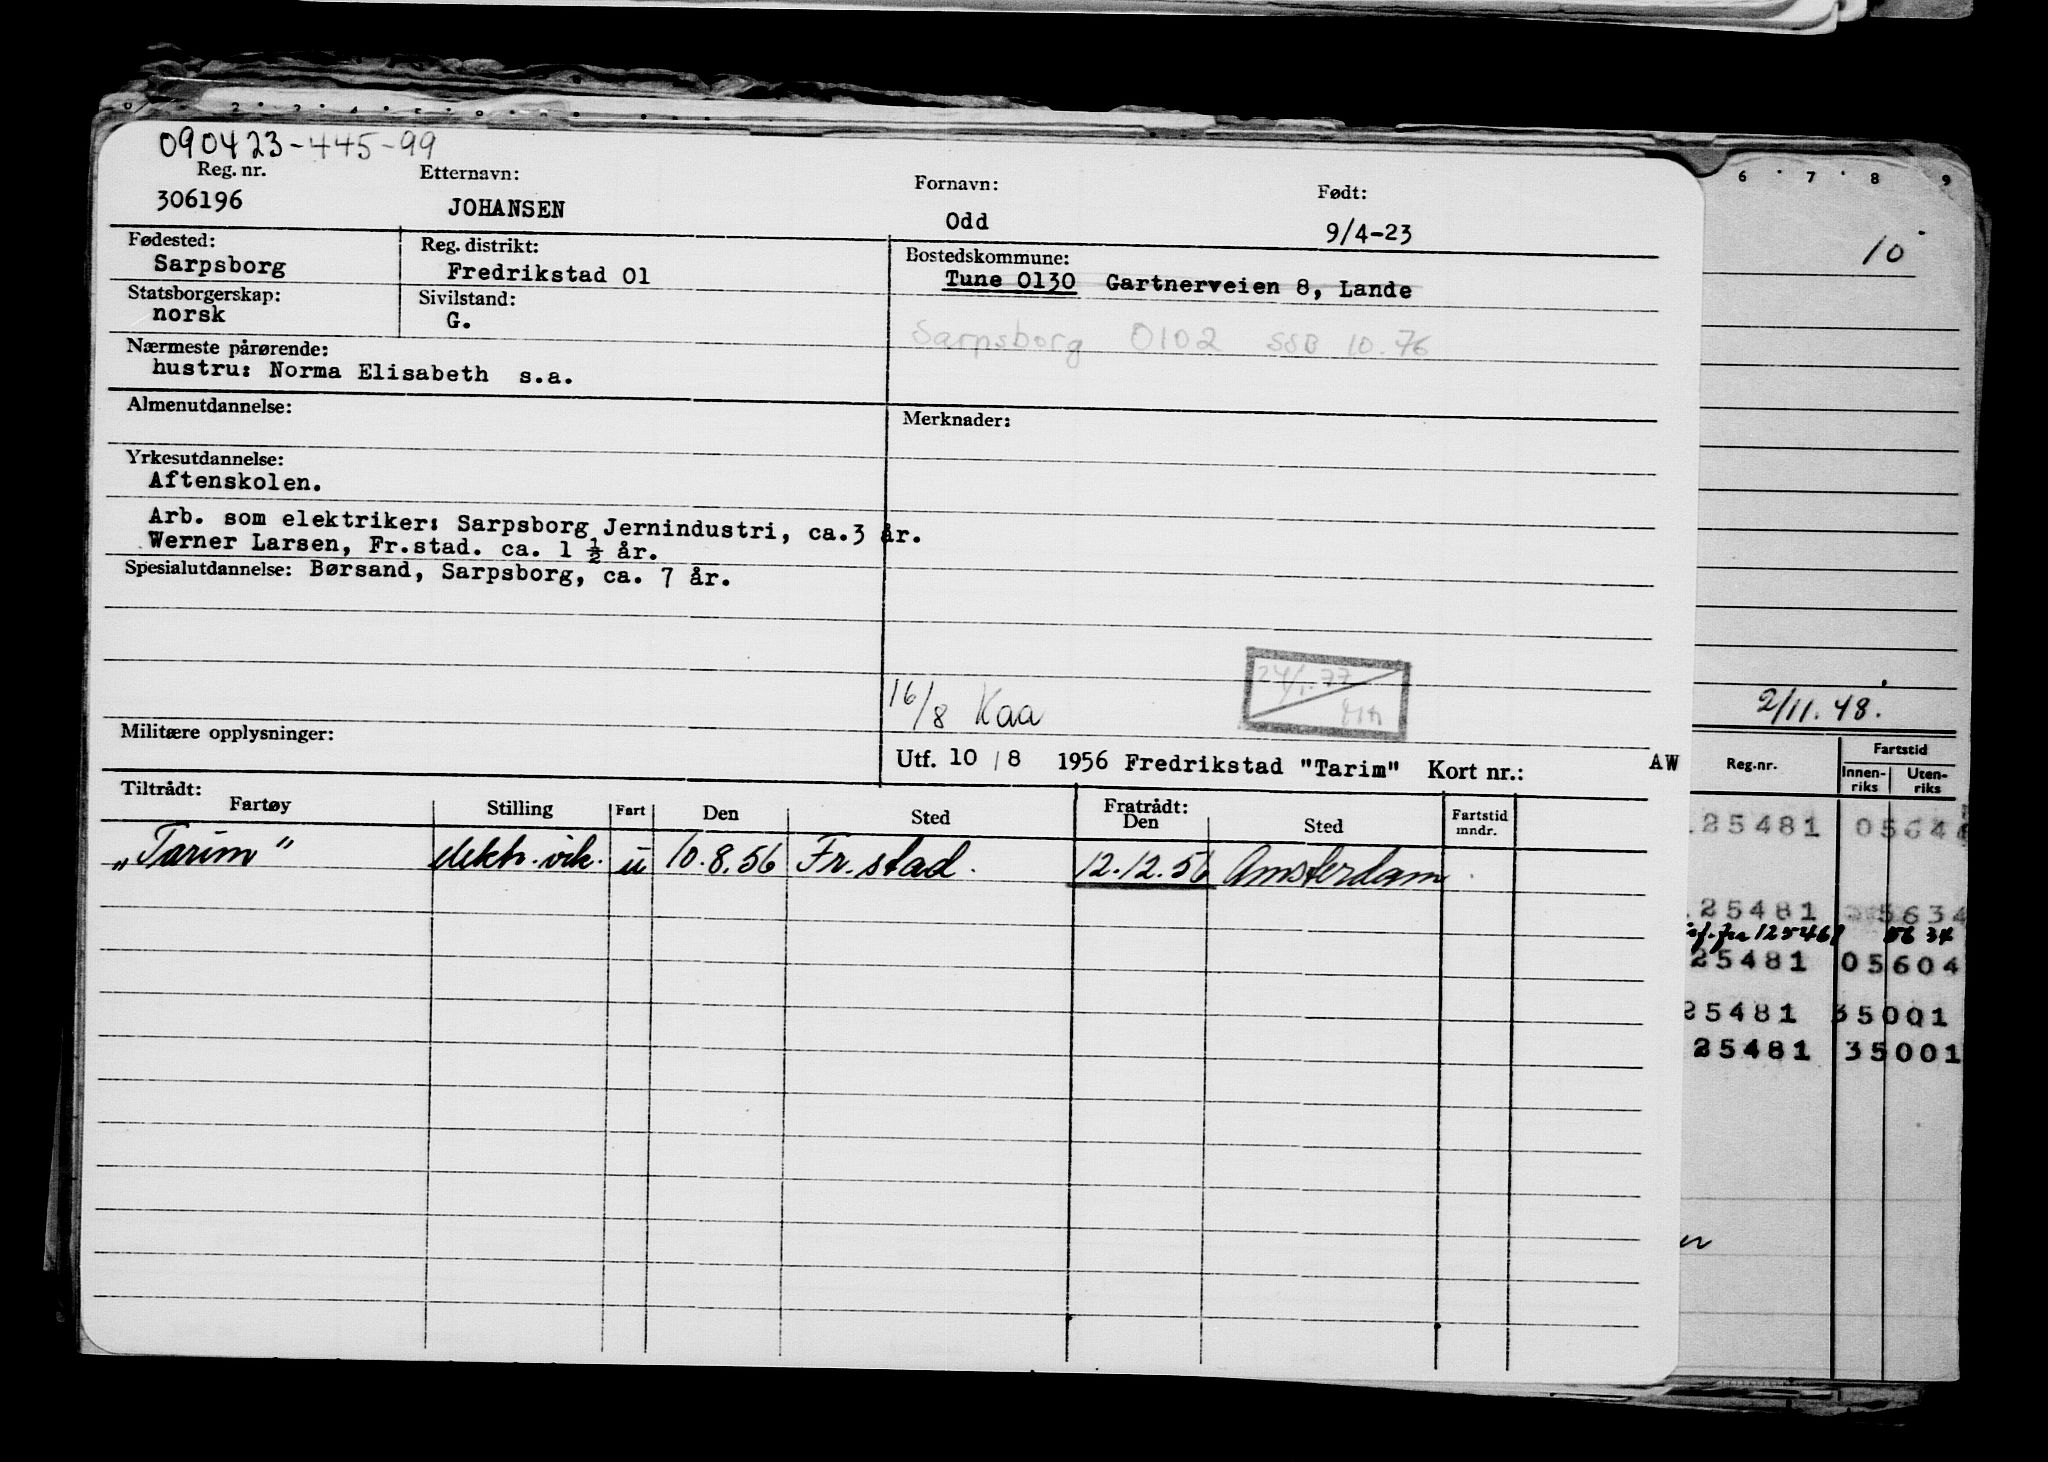 090423-445-99
Reg. nr. Etternavn: Fornavn: Født:
306196 JOHANSEN Odd 9/4-23
Fødested: Reg. distrikt: Bostedskommune:
Sarpsborg Fredrikstad 01 Tune 0130 Gartnerveien 8, Lande
Statsborgerskap: Sivilstand:
norsk G.
Sarpsborg 0102 SSB 10.76
Nærmeste pårørende:
hustru: Norma Elisabeth s.a.
Almenutdannelse: Merknader:
Yrkesutdannelse:
Aftenskolen.
Arb. som elektriker: Sarpsborg Jernindustri, ca.3 år.
Werner Larsen, Fr.stad. ca. 1 ½ år.
Spesialutdannelse: Børsand, Sarpsborg, ca. 7 år.
16/8 Kaa
24/1.77
Militære opplysninger:
Utf. 10 / 8 1956 Fredrikstad "Tarim" Kort nr.: AW
Tiltrådt: Fratrådt:
Fartøy Stilling Fart Den Sted Den Sted Fartstid mndr.
„Tarim" elektr. vik. u 10.8.56 Fr.stad. 12.12.56 Amsterdam
6 7 8 9
10
2/11.48.
Reg.nr. Fartstid
Innen-riks Uten-riks
25481 0564
25481 5634
25481 05604
25481 35001
25481 35001